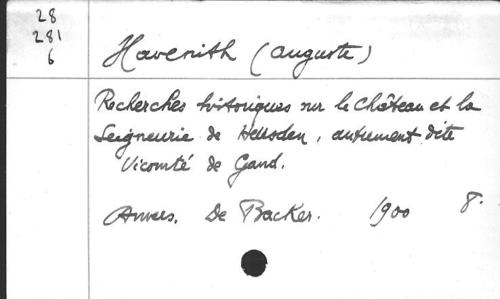 28
281
6
Havenith (Auguste)
Recherches historiques sur le Château et la
Seigneurie de Heusden, autrement dite
Vicomté de Gand.
Anvers. De Backer. 1900 8°